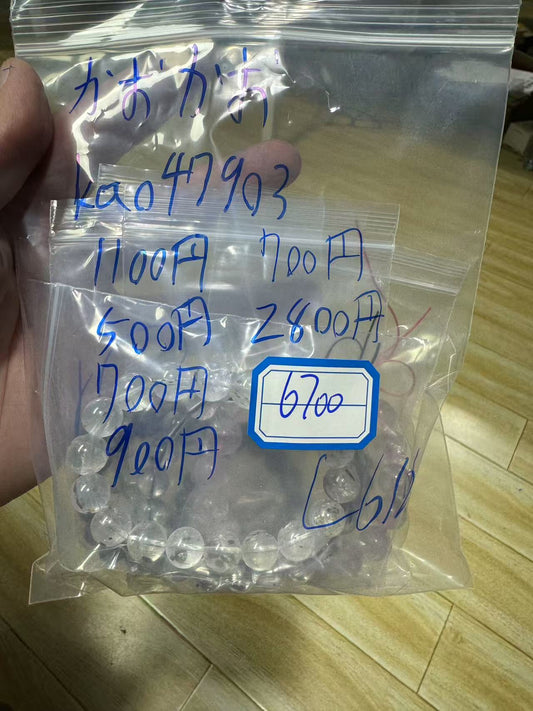 かおかお
kao47903
1100円 700円
500円 2800円
700円
900円
6700